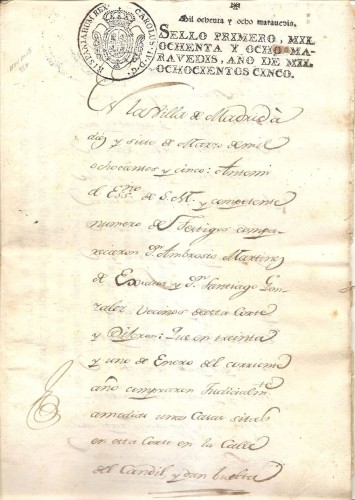 HISPANIARUM REX
CAROLUS IV D G
Mil ochenta y ocho maravedis.
SELLO PRIMERO, MIL
OCHENTA Y OCHO MA-
RAVEDIS, AÑO DE MIL
OCHOCIENTOS CINCO.
la Villa de Madrid à
diez y siete de Marzo de mil
ochocientos y cinco: Antemi
el Essno de S. M. y competente
numero de Testigos compa-
recieron Dn Ambrosio Martinez
de y Dn Santiago Gon-
zalez Vecinos de esta Corte
y Dixeron: Que en treinta
y uno de Enero del corriente
año compraron Judicialmte
amedias unas Casas sitas
en esta Corte en la Calle
del Candil y dan buelta